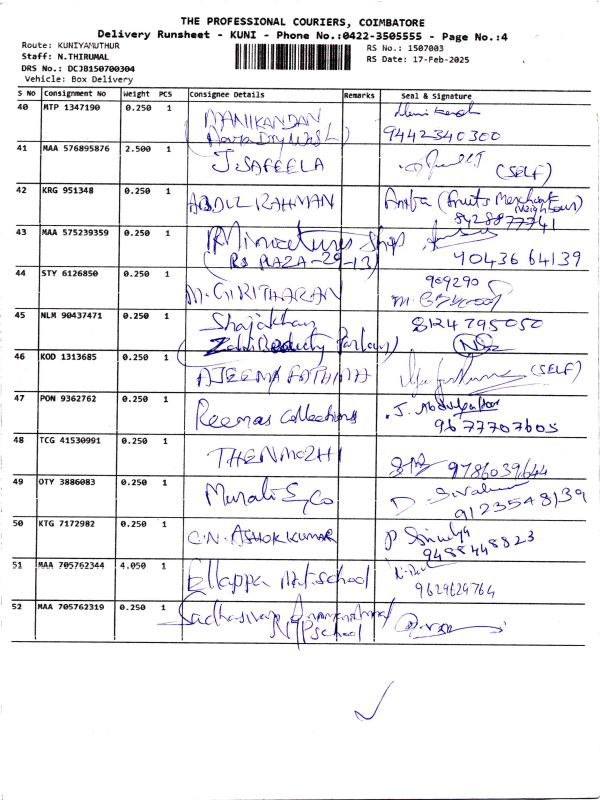 THE PROFESSIONAL COURIERS, COIMBATORE
Delivery Runsheet - KUNI - Phone No.:0422-3505555 - Page No.:4
Route: KUNIYAMUTHUR
RS No.: 1507003
Staff: N.THIRUMAL
RS Date: 17-Feb-2025
DRS No.: DCJB150700304
Vehicle: Box Delivery
S No Consignment No Weight PCS Consignee Details Remarks Seal & Signature
40 MTP 1347190 0.250 1 MANIKANDAN
9442340300
41 MAA 576895876 2.500 1 J.SAFEELA (SELF)
42 KRG 951348 0.250 1 ABDUL RAHMAN (Fruits Merchant
Neighbour)
8428877741
43 MAA 575239359 0.250 1 Miniatures Shop
(RS PLAZA-29-13) 9043664139
44 STY 6126850 0.250 1 M.GIRITHARAN 969290
45 NLM 90437471 0.250 1 Shajakhan 8124795050
Beauty Parlour)
46 KOD 1313685 0.250 1 AJEEMA FATHIMA (SELF)
47 PON 9362762 0.250 1 Reemas Collections J.
9677707605
48 TCG 41530991 0.250 1 THENMOZHI 9786039644
49 OTY 3886083 0.250 1 Murali & Co D
9123548139
50 KTG 7172982 0.250 1 C.N. ASHOK KUMAR P
9488448823
51 MAA 705762344 4.050 1 Ellappa school
9629629764
52 MAA 705762319 0.250 1
School